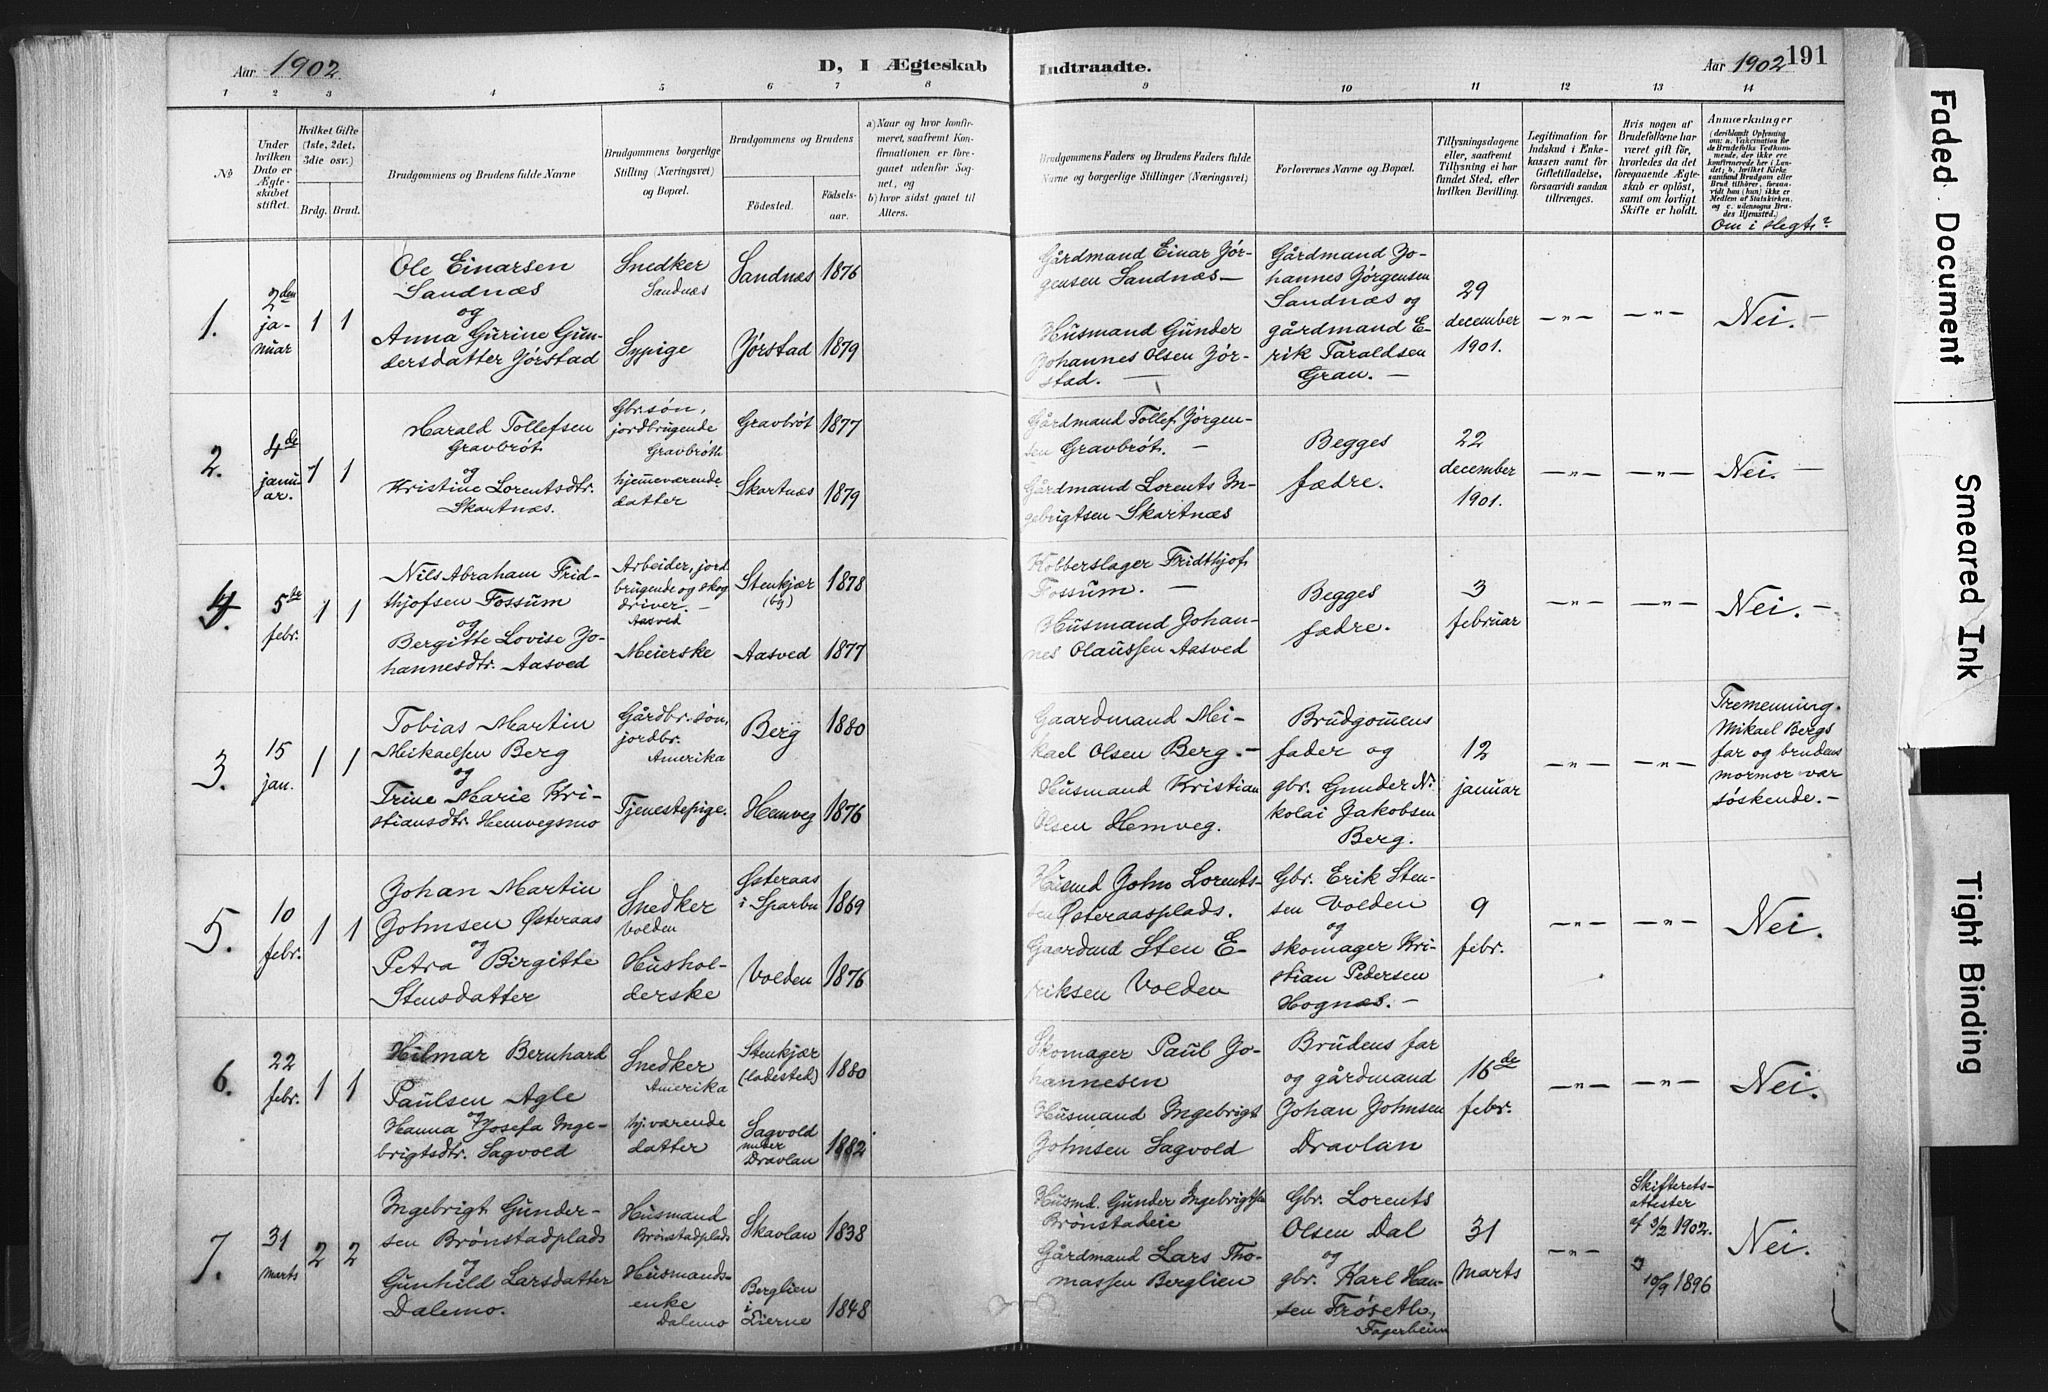 Aar 1902
D, I Ægteskab
Indtraadte.
Aar 1902
191
1 2 3 4 5 6 7 8 9 10 11 12 13 14
No
Under hvilken Dato er Ægteskabet stiftet.
Hvilket Gifte (1ste, 2det, 3die osv.)
Brdg. Brud.
Brudgommens og Brudens fulde Navne
Brudgommens borgerlige Stilling (Næringsvei) og Bopæl.
Brudgommens og Brudens
Fødested.
Fødselsaar.
a) Naar og hvor konfirmeret, saafremt Konfirmationen er foregaaet udenfor Sognet, og
b) hvor sidst gaaet til Alters.
Brudgommens Faders og Brudens Faders fulde Navne og borgerlige Stillinger (Næringsvei)
Forlovernes Navne og Bopæl.
Tillysningsdagene eller, saafremt Tillysning ei har fundet Sted, efter hvilken Bevilling.
Legitimation for Indskud i Enkekassen samt for Giftetilladelse, forsaavidt saadan tiltrænges.
Hvis nogen af Brudefolkene har været gift før, hvorledes da det foregaaende Ægteskab er opløst, samt om lovligt Skifte er holdt.
Anmærkninger
Om i slegt?
1.
2den
ja-
nuar
1 1
Ole Einarsen
Sandnæs
og
Anna Gurine Gun-
dersdatter Jørstad
Snedker
Sandnæs
Sypige
Sandnæs 1876
Jørstad 1879
Gårdmand Einar Jør-
gensen Sandnæs —
Husmand Gunder
Johannes Olsen Jør-
stad. —
Gårdmand Jo-
hannes Jørgensen
Sandnæs og
gårdmand E-
rik Taraldsen
Gran. —
29
december
1901.
— " —
— " —
Nei. —
2.
4de
janu-
ar.
1 1
Harald Tollefsen
Gravbrøt
og
Kristine Lorentsdtr.
Skartnæs.
Gbr.søn,
jordbrugende
Gravbrøth
hjemmeværende
datter
Gravbrøt 1877
Skartnæs 1879
Gårdmand Tollef Jørgen-
sen Gravbrøt. —
Gårdmand Lorents In-
gebrigtsen Skartnæs
Begges
fædre.
22
december
1901.
— " —
— " —
Nei. —
4.
5te
febr.
1 1
Nils Abraham Frid-
thjofsen Fossum
og
Bergitte Lovise Jo-
hannesdtr. Aasved
Arbeider, jord
brugende og skog
driver. —
Aasved
Meierske
Stenkjær
(by)
1878
Aasved 1877
Kobberslager Fridthjof
Fossum. —
Husmand Johan-
nes Olaussen Aasved
Begges
fædre.
3
februar
— " —
— " —
Nei. —
3.
15
jan.
1 1
Tobias Martin
Mikaelsen Berg
og
Trine Marie Kri-
stiansdtr. Hemvegsmo
Gårdbr. søn,
jordbr.
Amerika
Tjenestepige.
Berg 1880
Hemveg 1876
Gaardmand Mi-
kael Olsen Berg. —
Husmand Kristian
Olsen Hemveg.
Brudgommens
fader og
gbr. Gunder Ni-
kolai Jakobsen
Berg.
12
januar
— " —
— " —
Tremenning.
Mikael Bergs
far og brudens
mormor var
søskende. —
5.
10
febr.
1 1
Johan Martin
Johnsen Østeraas
og
Petra Birgitte
Stensdatter
Snedker
Volden
Hushol-
derske
Østeraas
i Sparbu
1869
Volden 1876
Husmd John Lorents-
sen Østeraasplads.
Gaardmd Sten E-
riksen Volden
Gbr. Erik Sten-
sen Volden
og
skomager Kri-
stian Pedersen
Hognæs. —
9
febr.
— " —
— " —
Nei.
6.
22
febr.
1 1
Hilmar Bernhard
Paulsen Agle
og
Hanna Josefa Inge-
brigtsdtr. Sagvold
Snedker
Amerika
hj. værende
datter
Stenkjær
(ladested)
1880
Sagvold
under
Dravlan
1882
Skomager Paul Jo-
hannesen
Husmand Ingebrigt
Johnsen Sagvold
Brudens far
og gårdmand
Johan Johnsen
Dravlan
16de
febr.
— " —
— " —
Nei.
7.
31
marts
2 2
Ingebrigt Gunder-
sen Brønstadplads
og
Gunhild Larsdatter
Dalemo.
Husmand
Brønstadplads
Husmands-
enke
Dalemo
Skavlan 1838
Berglien
i
Lierne
1848
Husmd. Gunder Ingebrigtsen
Brønstadeie
Gårdmand Lars Tho-
massen Berglien
Gbr. Lorents
Olsen Dal
og
gbr. Karl Han-
sen Frøseth,
Fagerheim
31
marts
— " —
Skifterets-
attester
af 3/2 1902.
10/9 1896
Nei.
Faded Document
Smeared Ink
Tight Binding